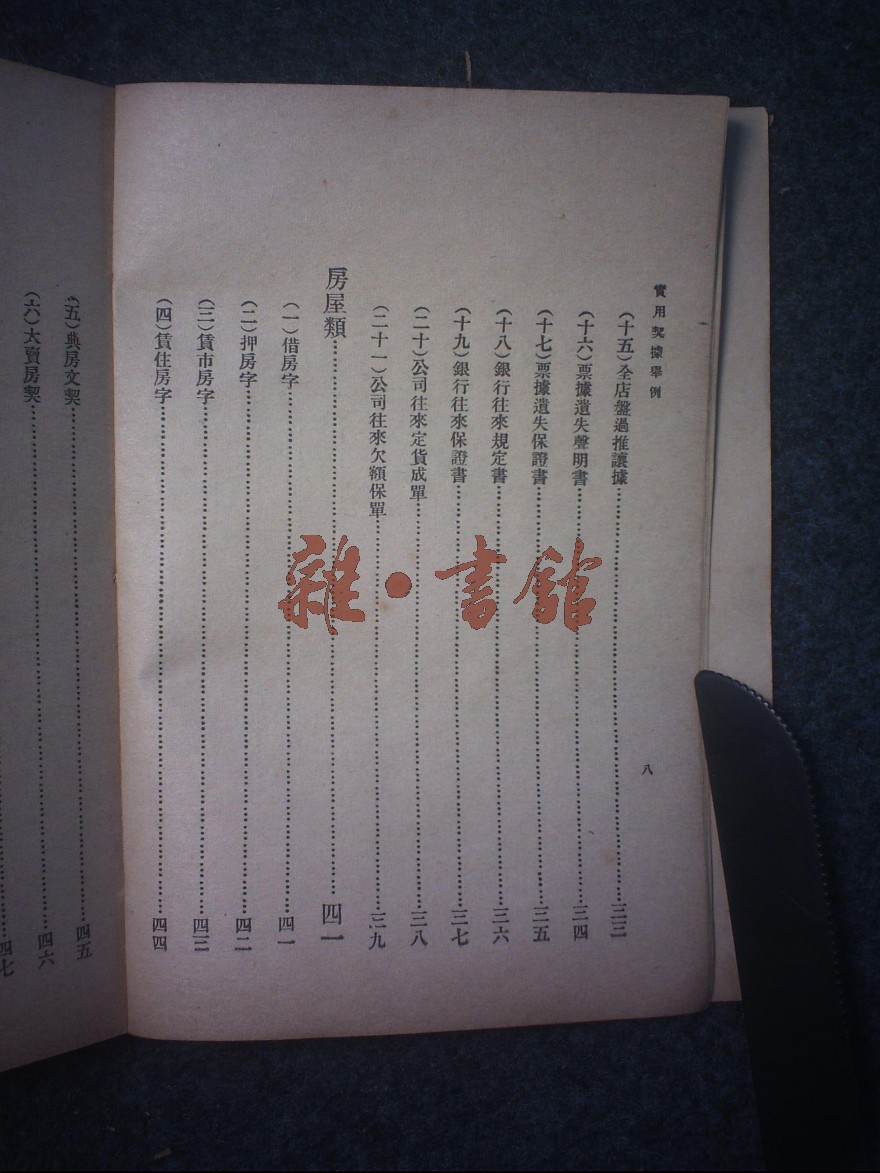 實用契據舉例
(十五)全店盤過推讓據……三三
(十六)票據遺失聲明書……三四
(十七)票據遺失保證書……三五
(十八)銀行往來規定書……三六
(十九)銀行往來保證書……三七
(二十)公司往來定貨成單……三八
(二十一)公司往來欠額保單……三九
房屋類……四一
(一)借房字……四一
(二)押房字……四二
(三)賃市房字……四三
(四)賃住房字……四四
八
(五)典房文契……四五
(六)大賣房契……四六
四七
雜·書館